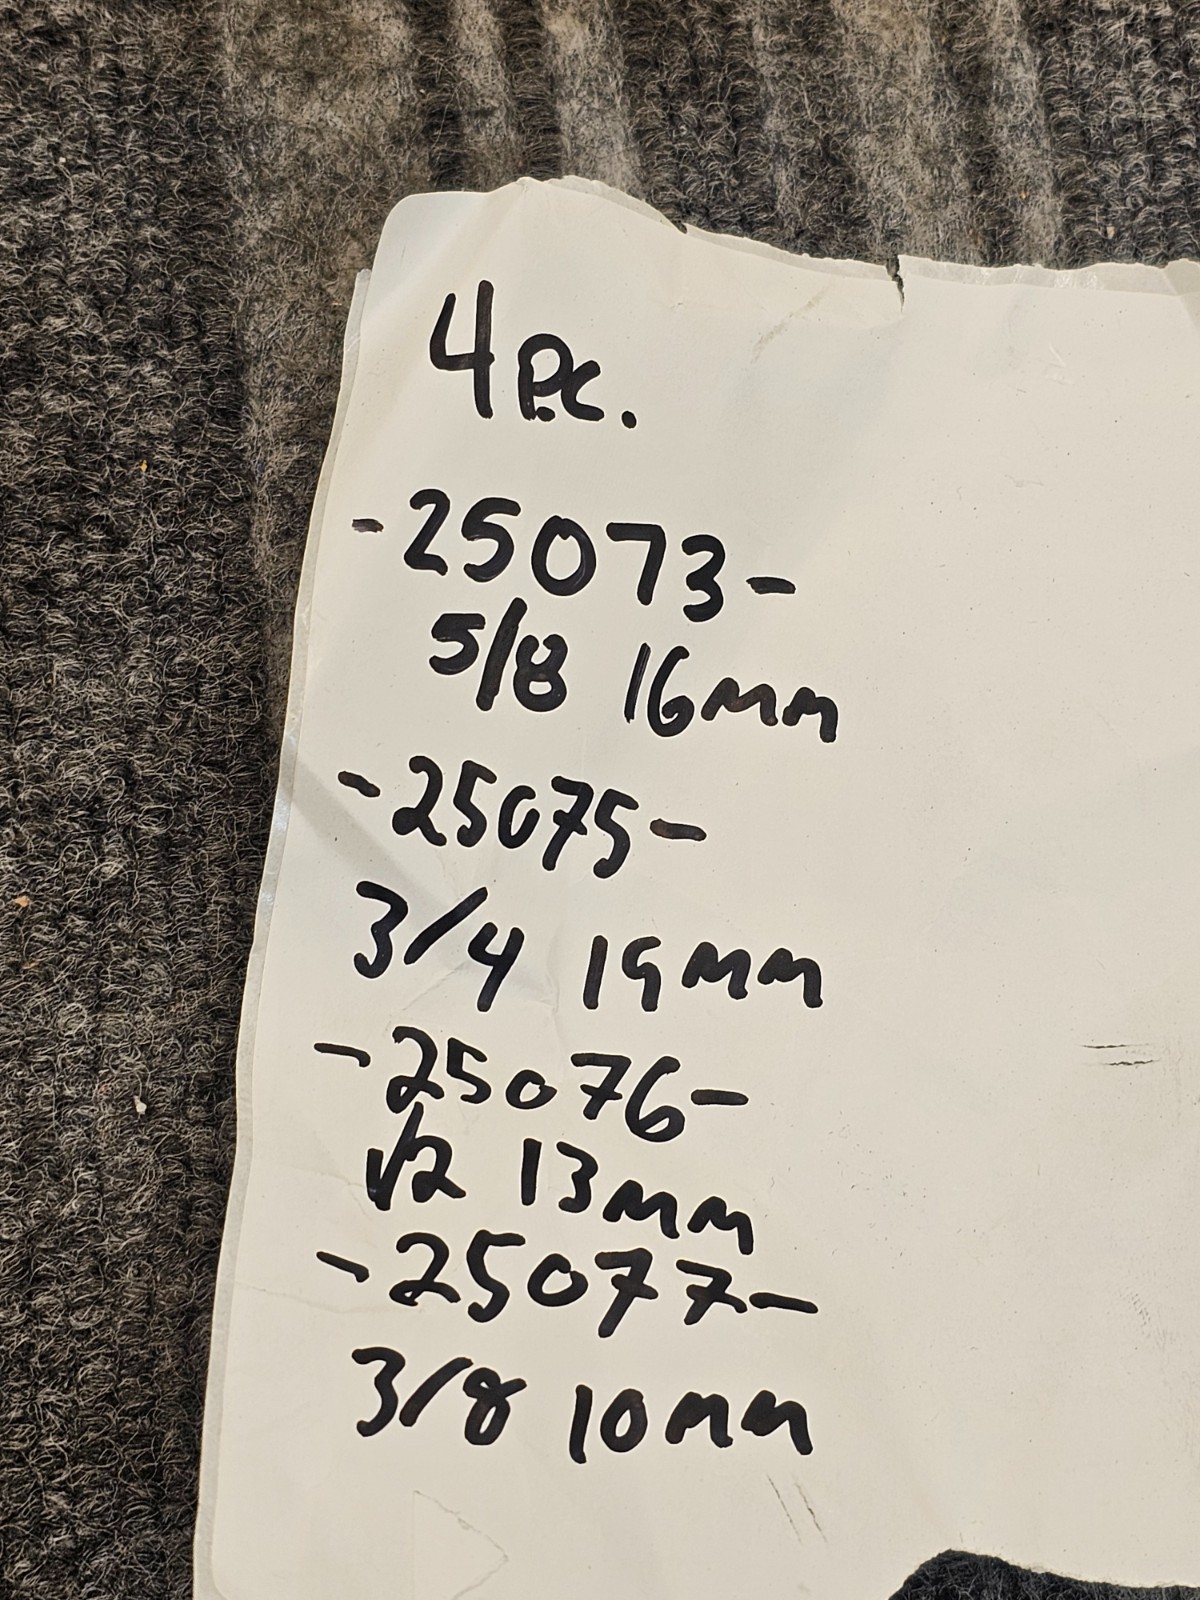 4 P.C.
-25073-
5/8 16mm
-25075-
3/4 19mm
-25076-
1/2 13mm
-25077-
3/8 10mm